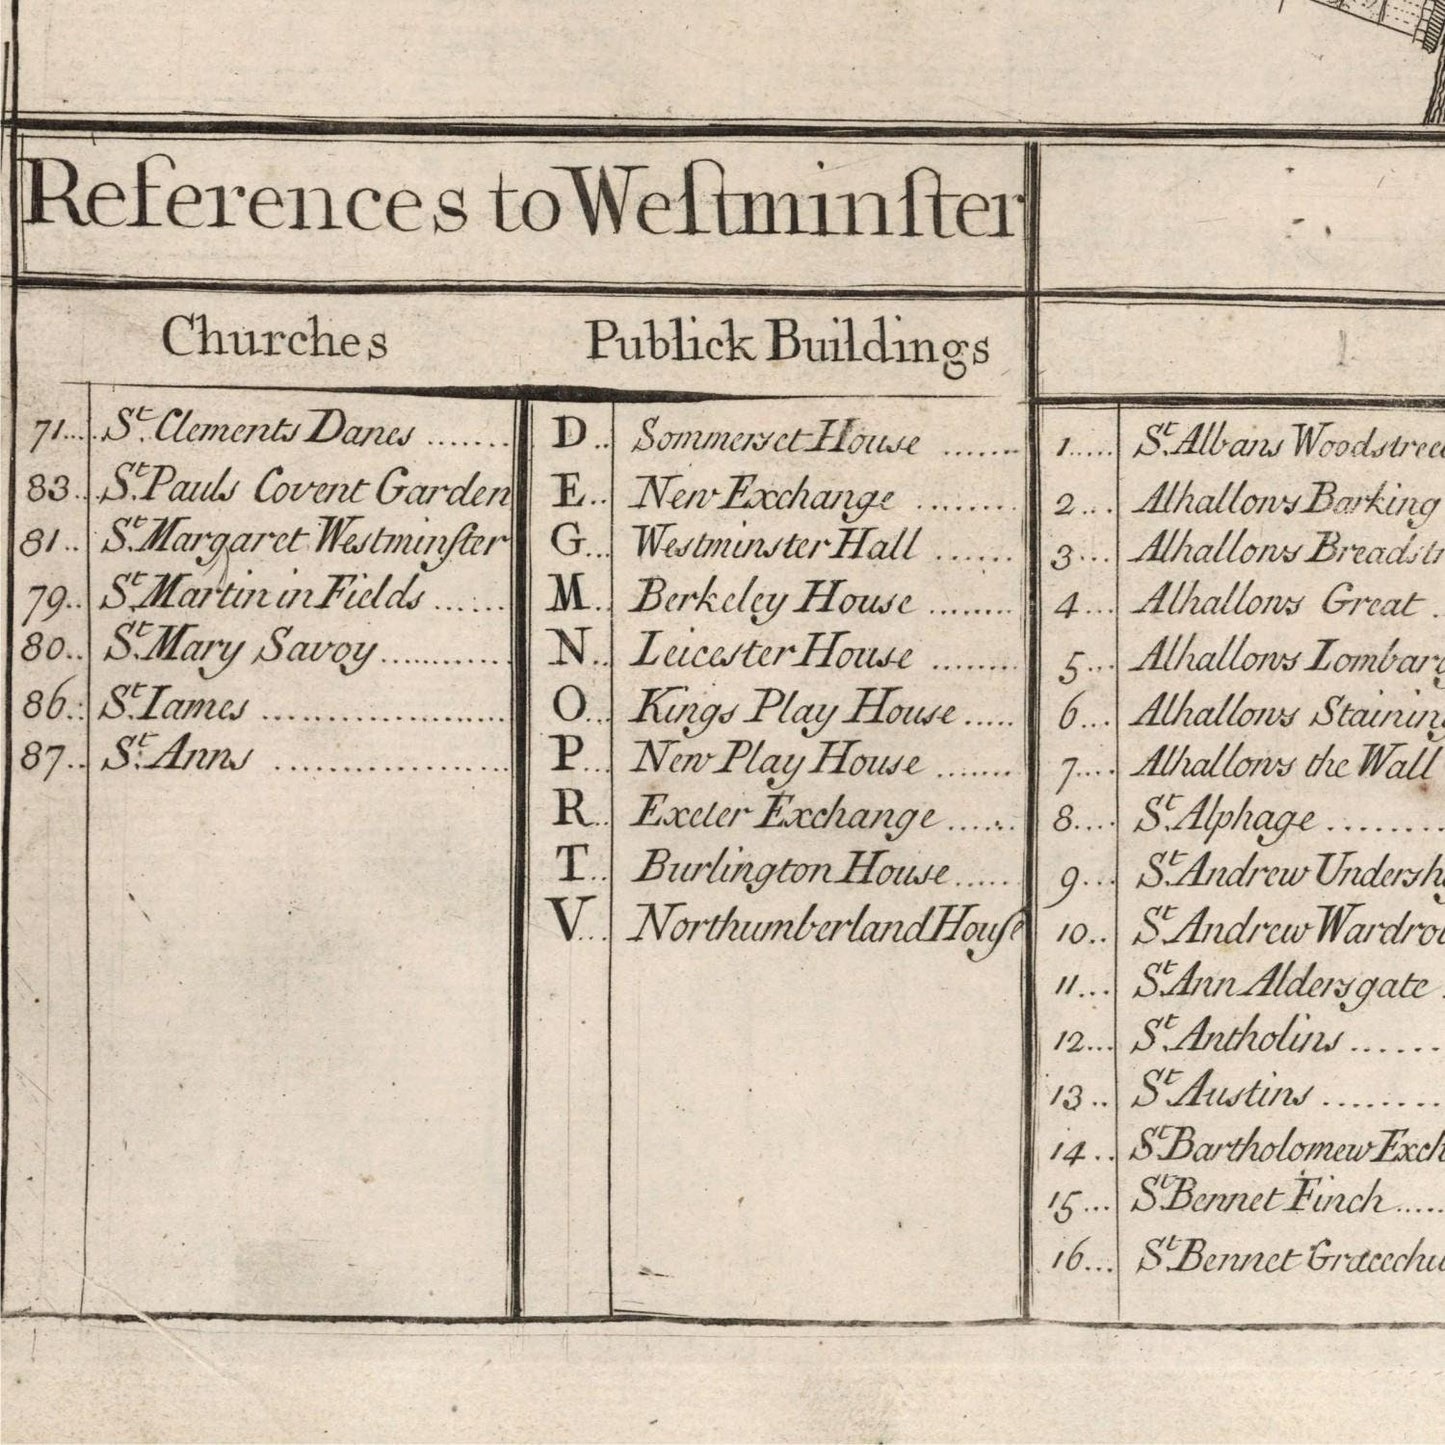 References to Weſtminſter
Churches
71... St. Clements Danes .......
83.. St. Pauls Covent Garden
81.. St. Margaret Westminſter
79.. St. Martin in Fields ......
80.. St. Mary Savoy............
86.. St. Iames .....................
87.. St. Anns ....................
Publick Buildings
D.. Sommerset House .......
E.. New Exchange ........
G... Westminster Hall ......
M.. Berkeley House ........
N.. Leicester House ........
O... Kings Play House .....
P... New Play House .......
R.. Exeter Exchange ......
T.. Burlington House.....
V... Northumberland Houſe
1..... St. Albans Woodstree
2... Alhallows Barking
3... Alhallows Breadstr
4... Alhallows Great .
5... Alhallows Lombar
6... Alhallows Staining
7.... Alhallows the Wall
8.... St. Alphage ........
9... St. Andrew Undersh
10.. St. Andrew Wardro
11... St. Ann Aldersgate .
12... St. Antholins ......
13.. St. Austins ........
14.. St. Bartholomew Exch
15... St. Bennet Finch .....
16... St. Bennet Gracechu